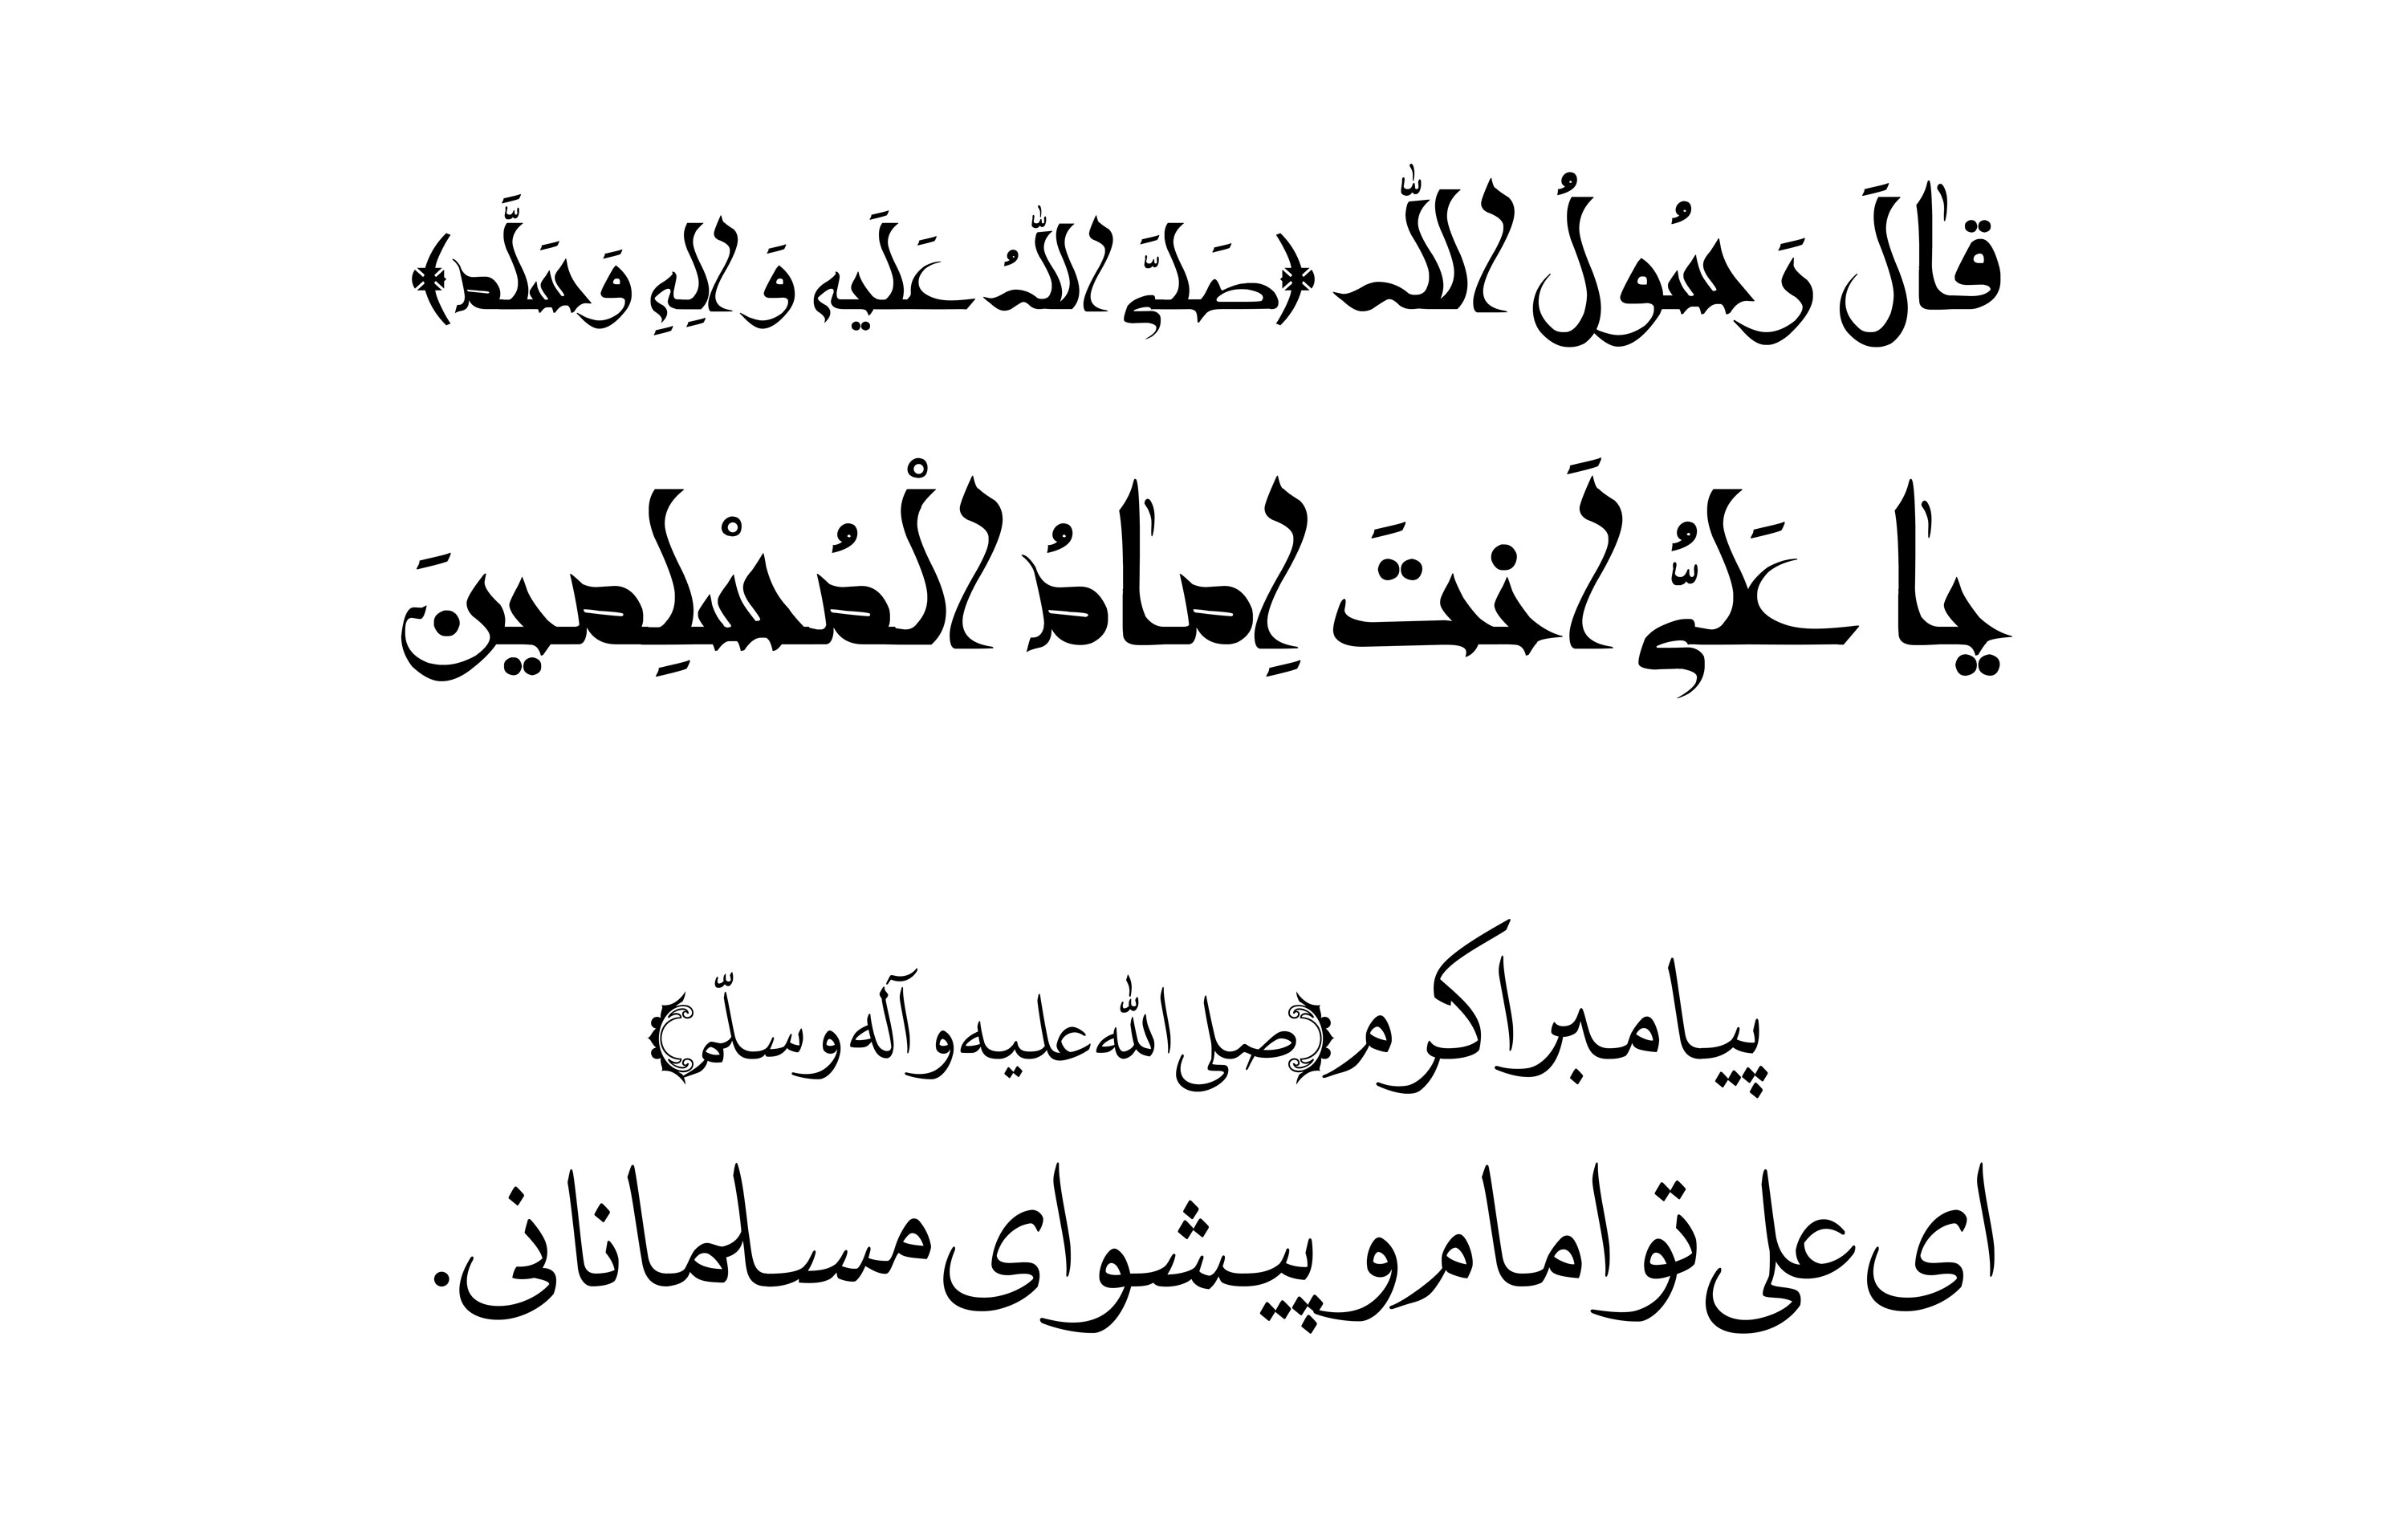 قَالَ رَسُولُ اللّٰه (صَلَّی اللّٰهُ عَلَیهِ وَ الِهِ وَ سَلَّمَ)
یا عَلَیُّ اَنتَ اِمامُ الْمُسْلِمینَ
پیامبر اکرم (صلی اللّٰه علیه و آله و سلّم)
ای علی تو امام و پیشوای مسلمانانی.